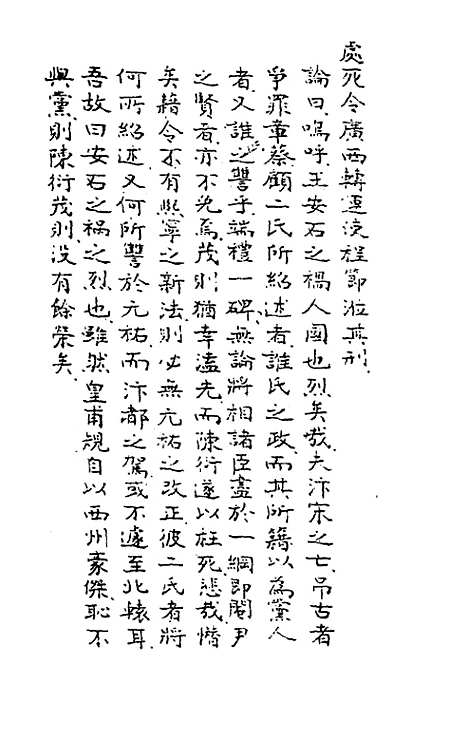 處死令廣西轉運使程節涖其刑
論曰嗚呼王安石之禍人國也烈矣哉夫汴宋之亡吊古者
爭罪章蔡顧二氏所紹述者誰氏之政而其所籍以為黨人
者又誰之讐乎端禮一碑無論將相諸臣盡於一網即閹尹
之賢者亦不免焉茂則猶幸溘先而陳衍遂以枉死悲哉惜
矣藉令不有熙寧之新法則必無元祐之改正彼二氏者將
何所紹述又何所讐於元祐而汴都之駕或不遽至北轅耳
吾故曰安石之禍之烈也雖然皇甫規自以西州豪傑恥不
與黨則陳衍茂則没有餘榮矣